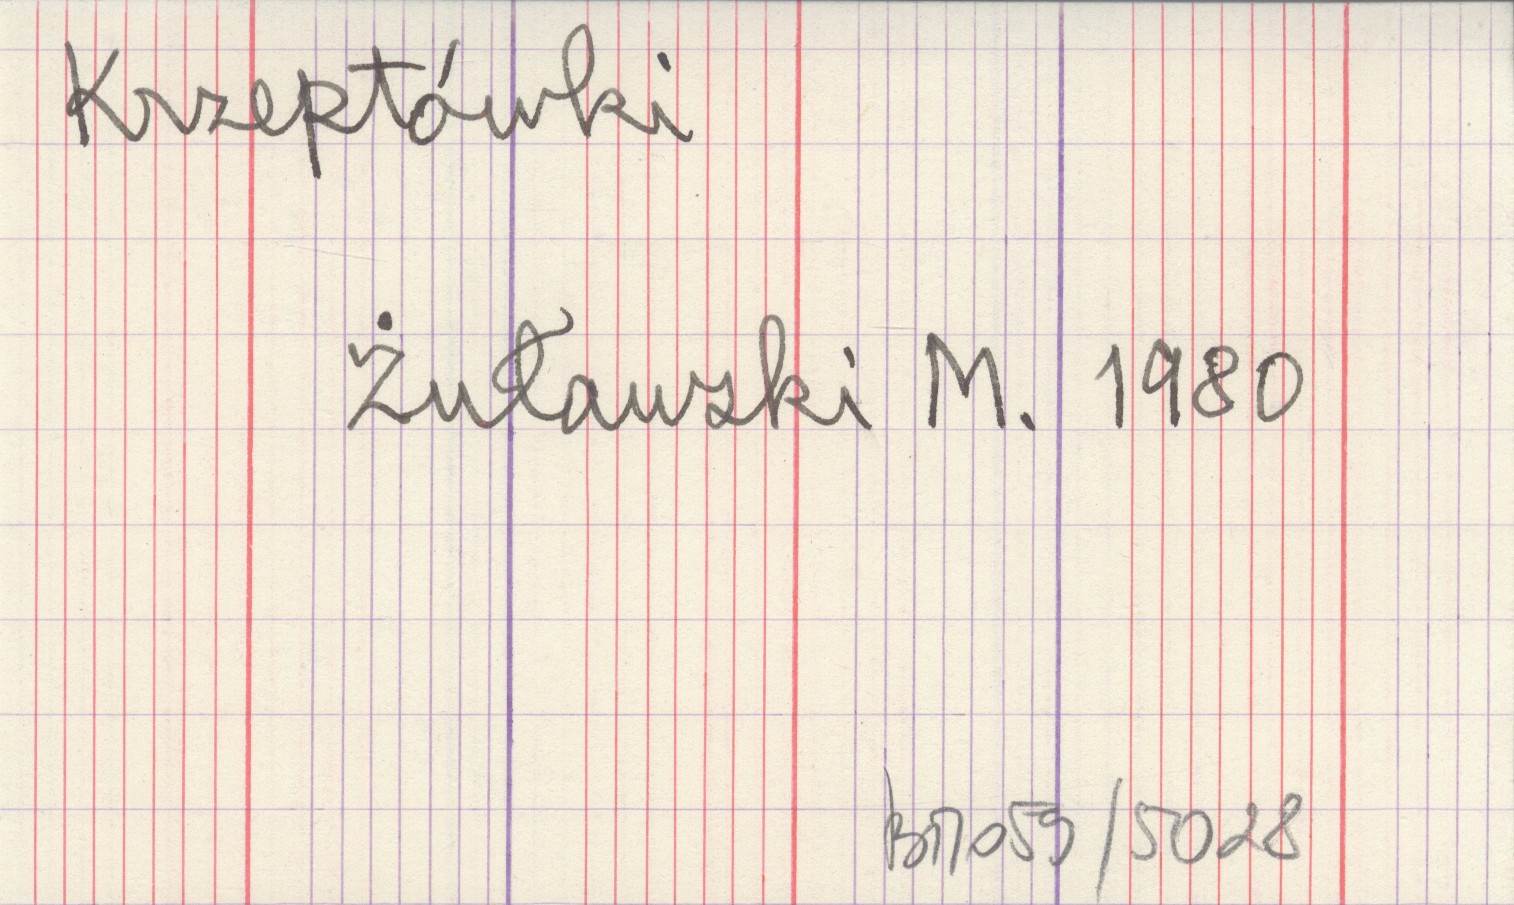 Krzeptówki
Żuławski M. 1980
/5028